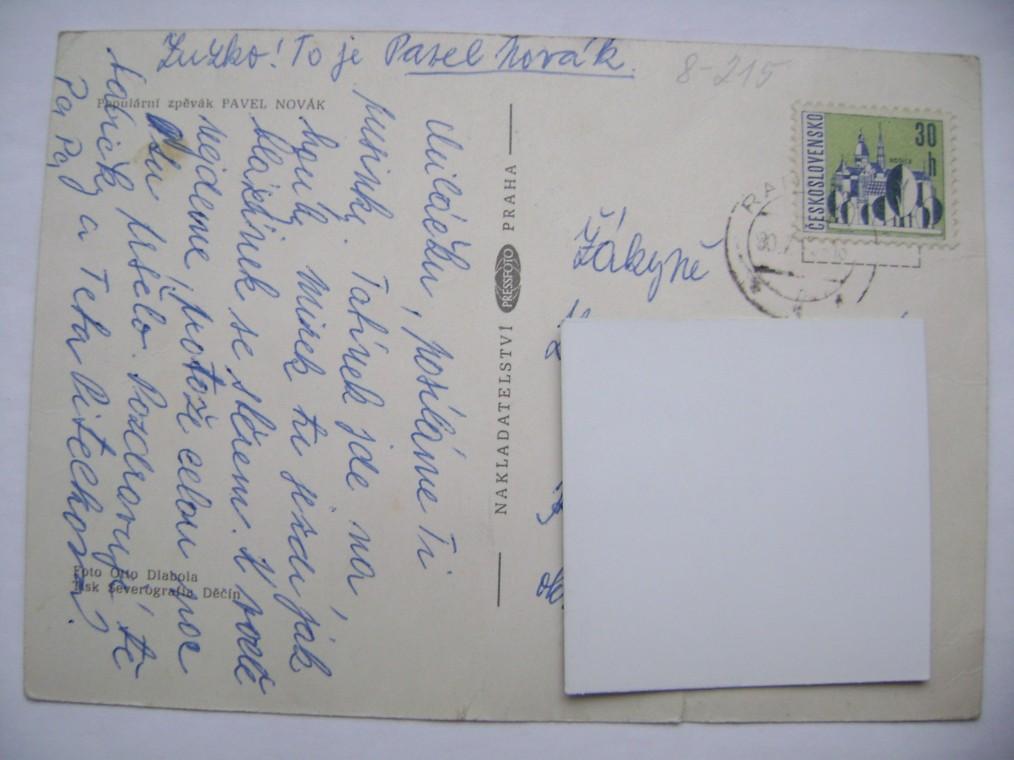 Zuzko! To je Pavel Novák.
8-215
Populární zpěvák PAVEL NOVÁK
Miláčku, posíláme Ti
pusinky. Tatínek jde na
houby. Mirek ti jezdí jak
blázínek se sběrem. K vodě
nejdeme, protože celou noc
lilo. Pozdravují tě
babička a Teta
Pa Pa
Foto Otto Dlabola
Tisk Severografia Děčín
NAKLADATELSTVÍ PRESSFOTO PRAHA
ČESKOSLOVENSKO
30
h
Žákyně